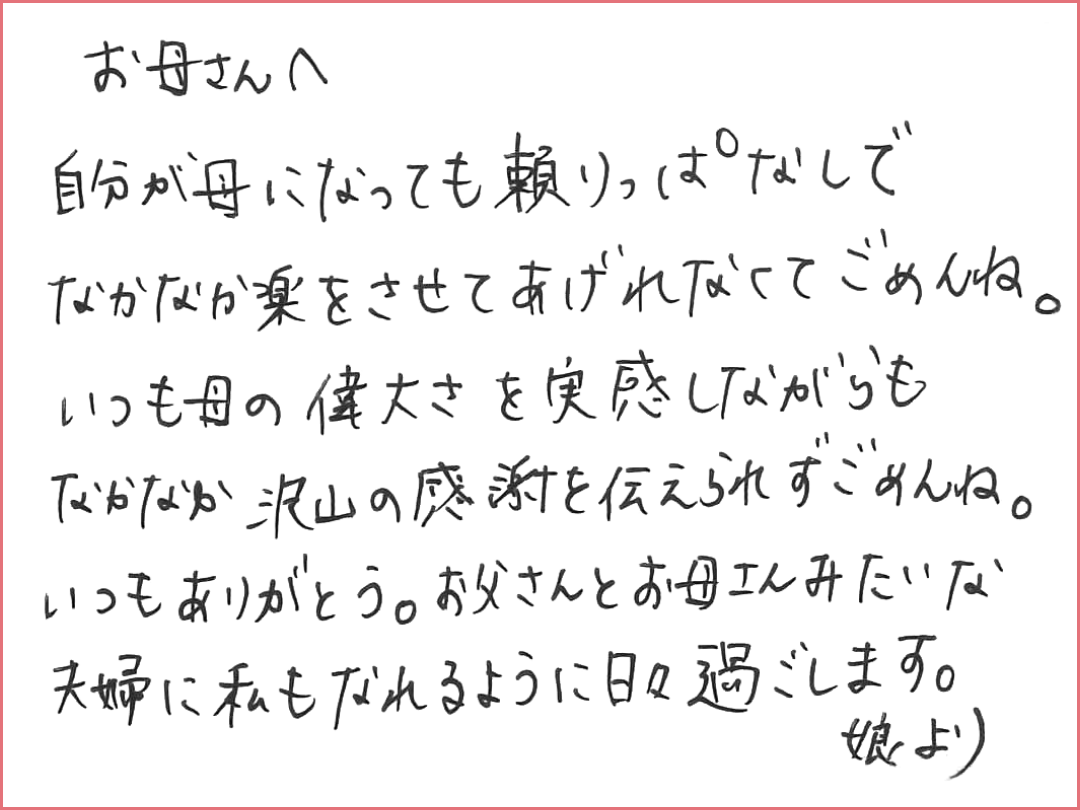 お母さんへ
自分が母になっても頼りっぱなしで
なかなか楽をさせてあげれなくてごめんね。
いつも母の偉大さを実感しながらも
なかなか沢山の感謝を伝えられずごめんね。
いつもありがとう。お父さんとお母さんみたいな
夫婦に私もなれるように日々過ごします。
娘より